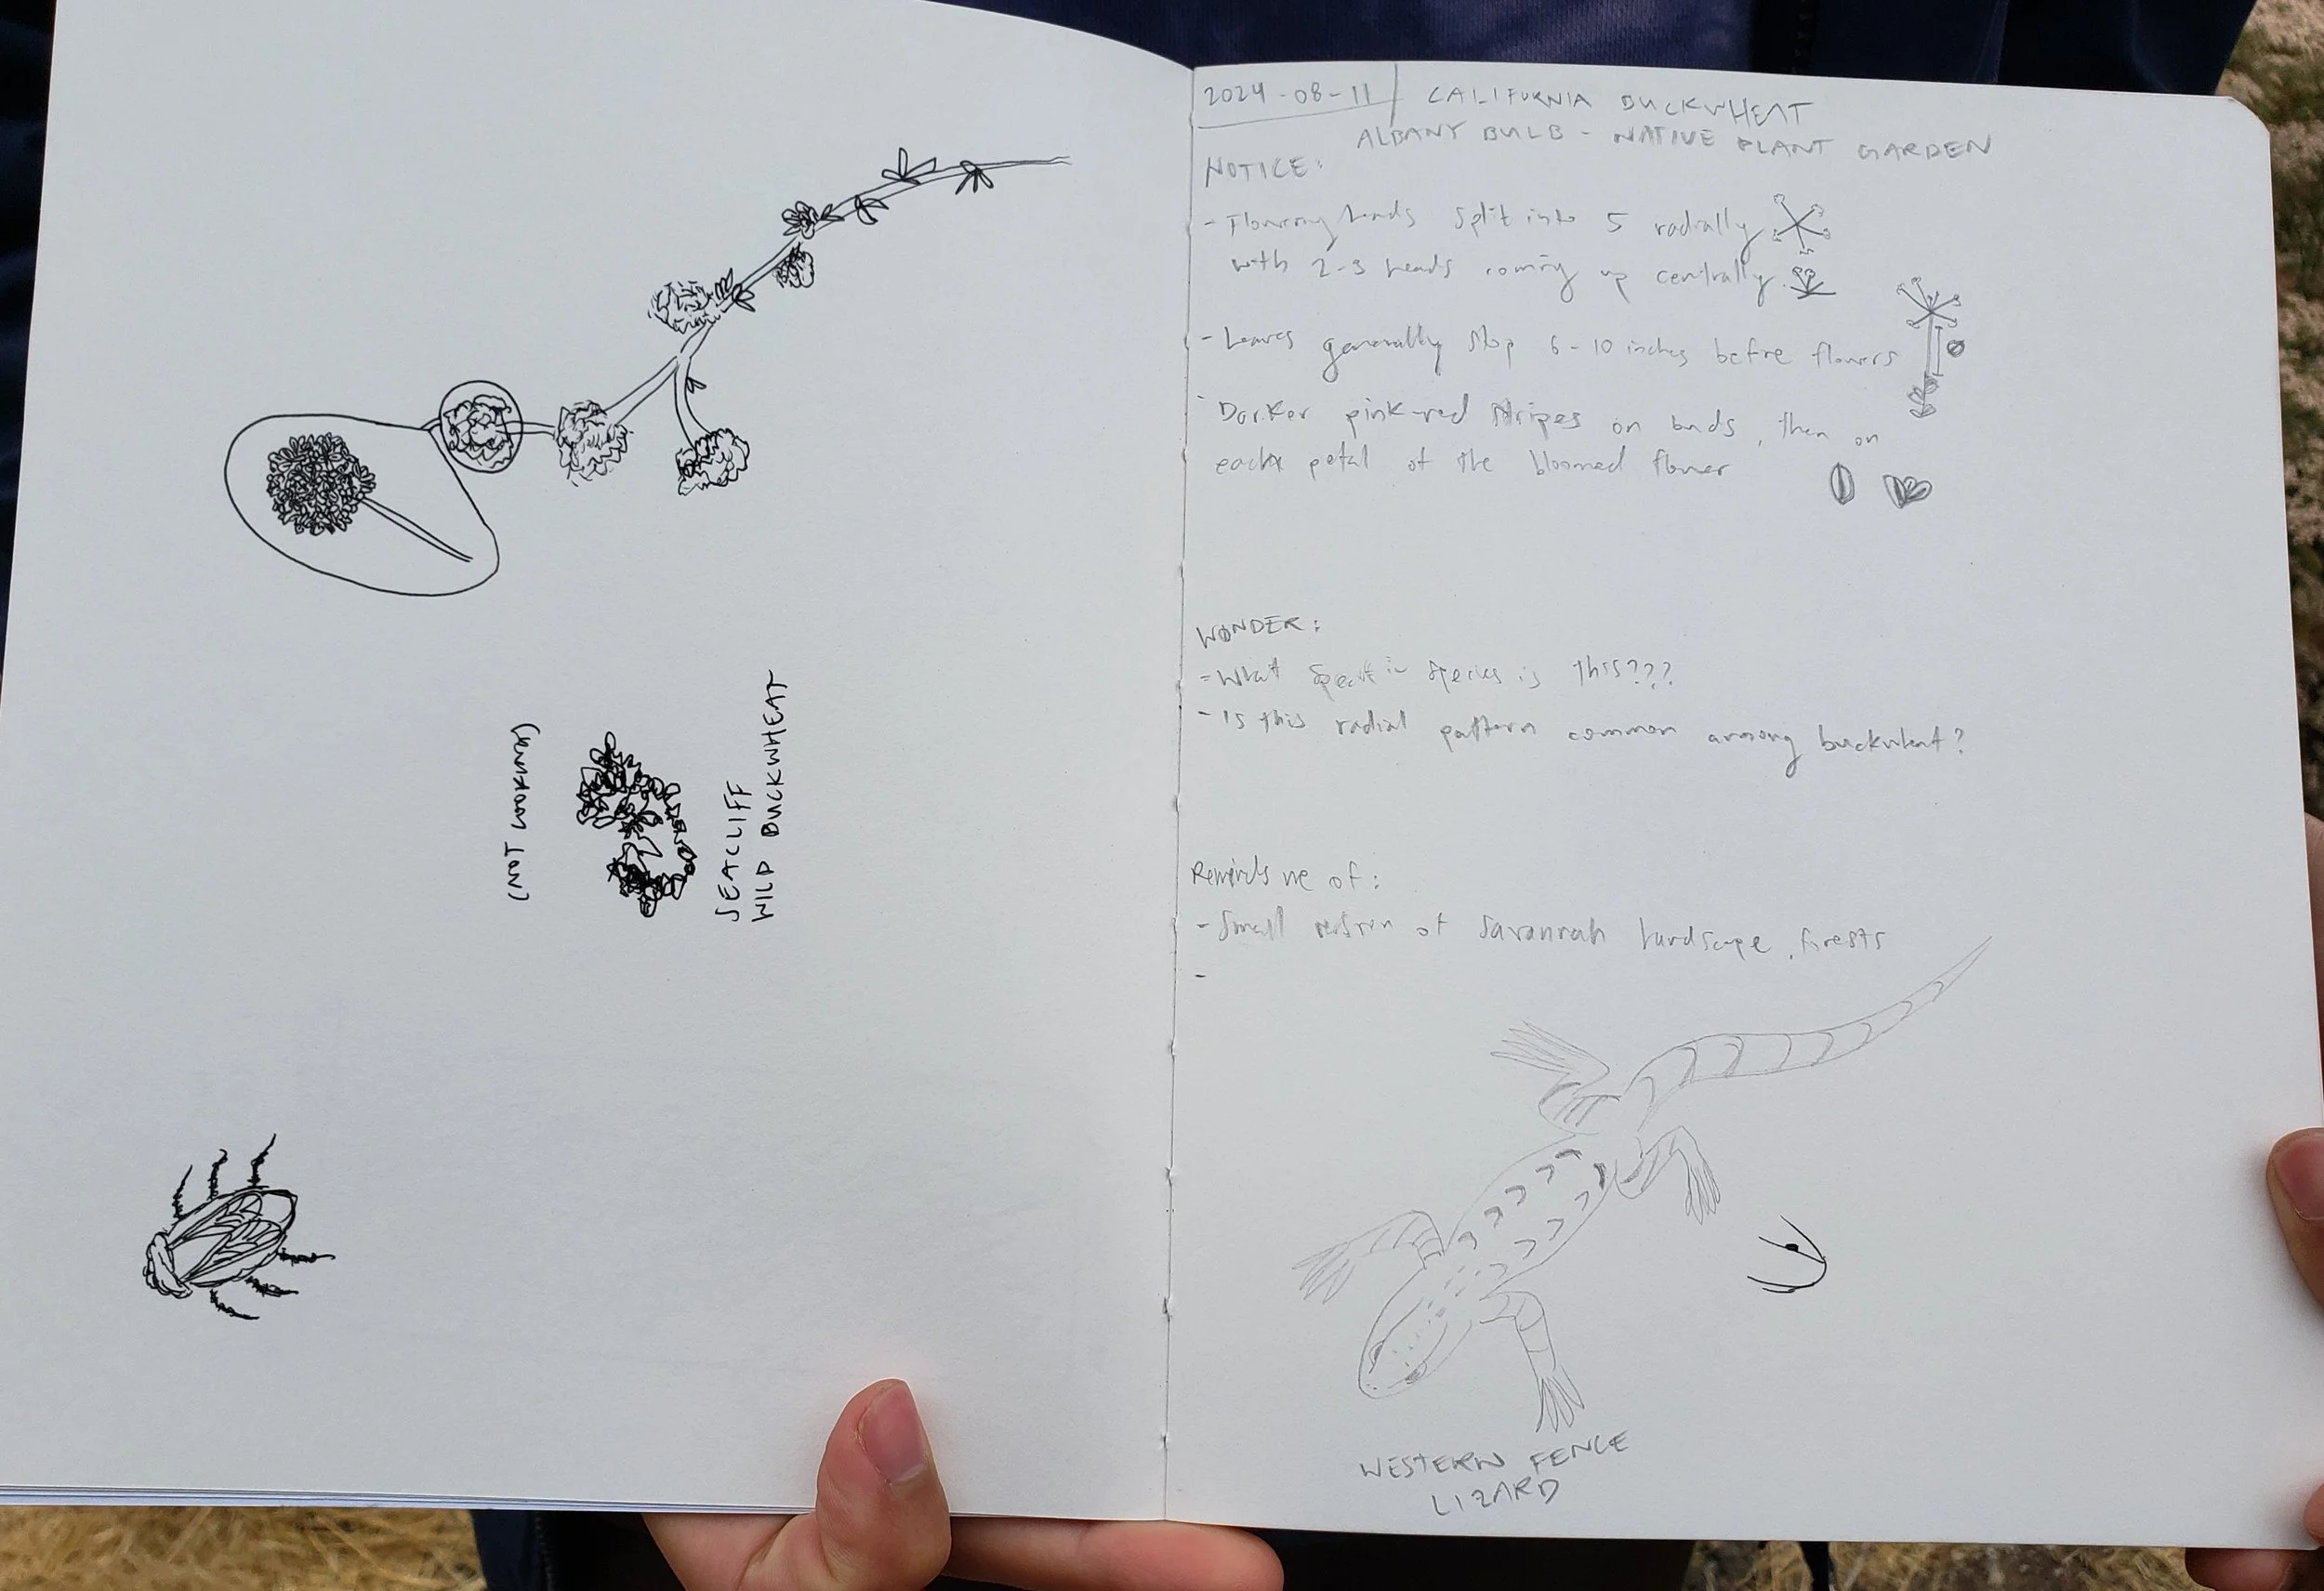 (NOT LOOKING)
SEACLIFF
WILD BUCKWHEAT
2024-08-11 CALIFORNIA BUCKWHEAT
ALBANY BULB - NATIVE PLANT GARDEN
NOTICE:
- Flowering heads split into 5 radially
with 2-3 heads coming up centrally.
- Leaves generally stop 6-10 inches before flowers
- Darker pink-red stripes on buds, then on
each petal of the bloomed flower
WONDER:
- What specific species is this???
- Is this radial pattern common among buckwheat?
Reminds me of:
- Small version of Savannah landscape, forests
-
WESTERN FENCE
LIZARD